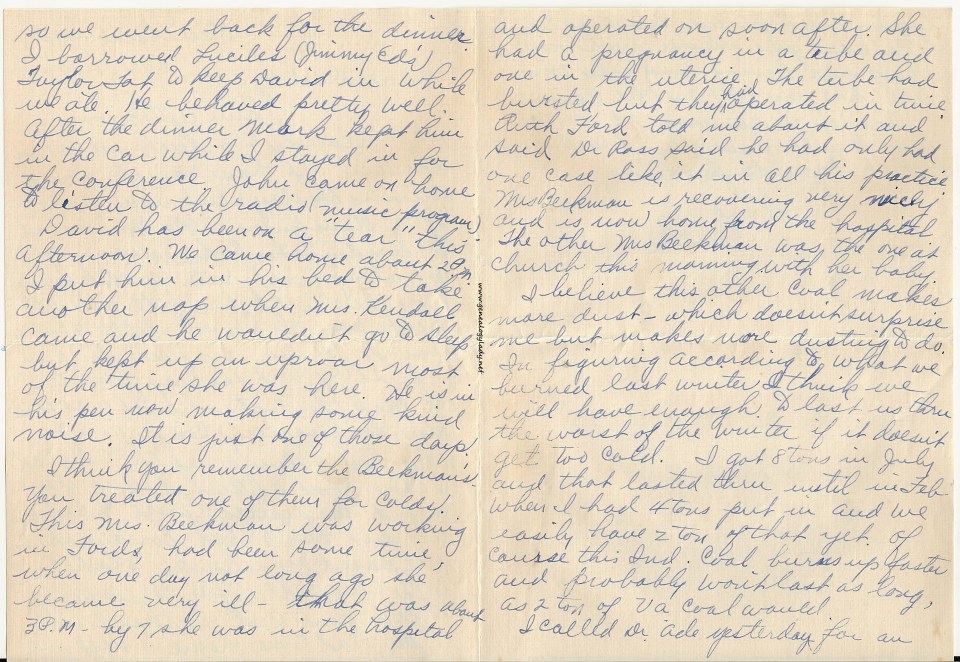 so we went back for the dinner.
I borrowed Luciles (Jimmy Ed's)
Taylor Tot to keep David in while
we ate. He behaved pretty well.
After the dinner Mark kept him
in the car while I stayed in for
the conference. John came on home
to listen to the radio (music program)
David has been on a "tear" this
afternoon. We came home about 2 P.M.
I put him in his bed to take
another nap when Mrs. Kendall
came and he wouldn't go to sleep
but kept up an uproar most
of the time she was here. He is in
his pen now making some kind
noise. It is just one of those days.
I think you remember the Beekman's.
You treated one of them for colds.
This Mrs. Beekman was working
in Fords, had been some time
when one day not long ago she
became very ill - that was about
3 P.M - by 7 she was in the hospital
and operated on soon after. She
had a pregnancy in a tube and
one in the uterice. The tube had
bursted but they had operated in time
Ruth Ford told me about it and
said Dr Ross said he had only had
one case like it in all his practice
Mrs Beekman is recovering very nicely
and is now home from the hospital
The other Mrs Beekman was the one at
church this morning with her baby.
I believe this other coal makes
more dust - which doesn't surprise
me but makes more dusting to do.
In figuring according to what we
burned last winter I think we
will have enough to last us thru
the worst of the winter if it doesn't
get too cold. I got 8 tons in July
and that lasted thru until in Feb
when I had 4 tons put in and we
easily have 2 ton of that yet. Of
course this Ind. Coal burns up faster
and probably won't last as long,
as 2 ton of Va coal would
I called Dr. Ade yesterday for an
www.genealogylady.net